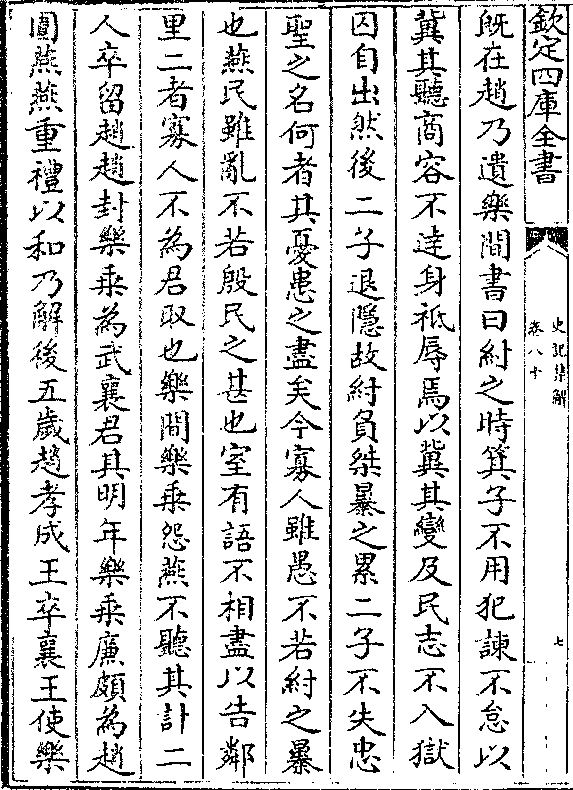 欽定四庫全書
史記集解
卷八十
七
旣在趙乃遺樂間書曰紂之時箕子不用犯諫不怠以
冀其聽商容不達身祗辱焉以冀其變及民志不入獄
囚自出然後二子退隱故紂負桀暴之累二子不失忠
聖之名何者其憂患之盡矣今寡人雖愚不若紂之暴
也燕民雖亂不若殷民之甚也室有語不相盡以告鄰
里二者寡人不為君取也樂間樂乘怨燕不聽其計二
人卒留趙趙封樂乘為武襄君其明年樂乘廉頗為趙
圍燕燕重禮以和乃解後五歲趙孝成王卒襄王使樂